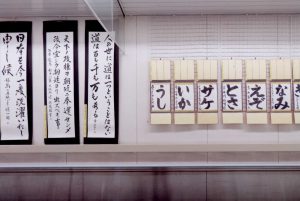 き
なみ
えぞ
とさ
サケ
いか
うし
人の世に道は一つということはない
道は百も千も万もある
天下の政権を朝廷に奉還せ
日本を今一度洗濯いたし
申し候